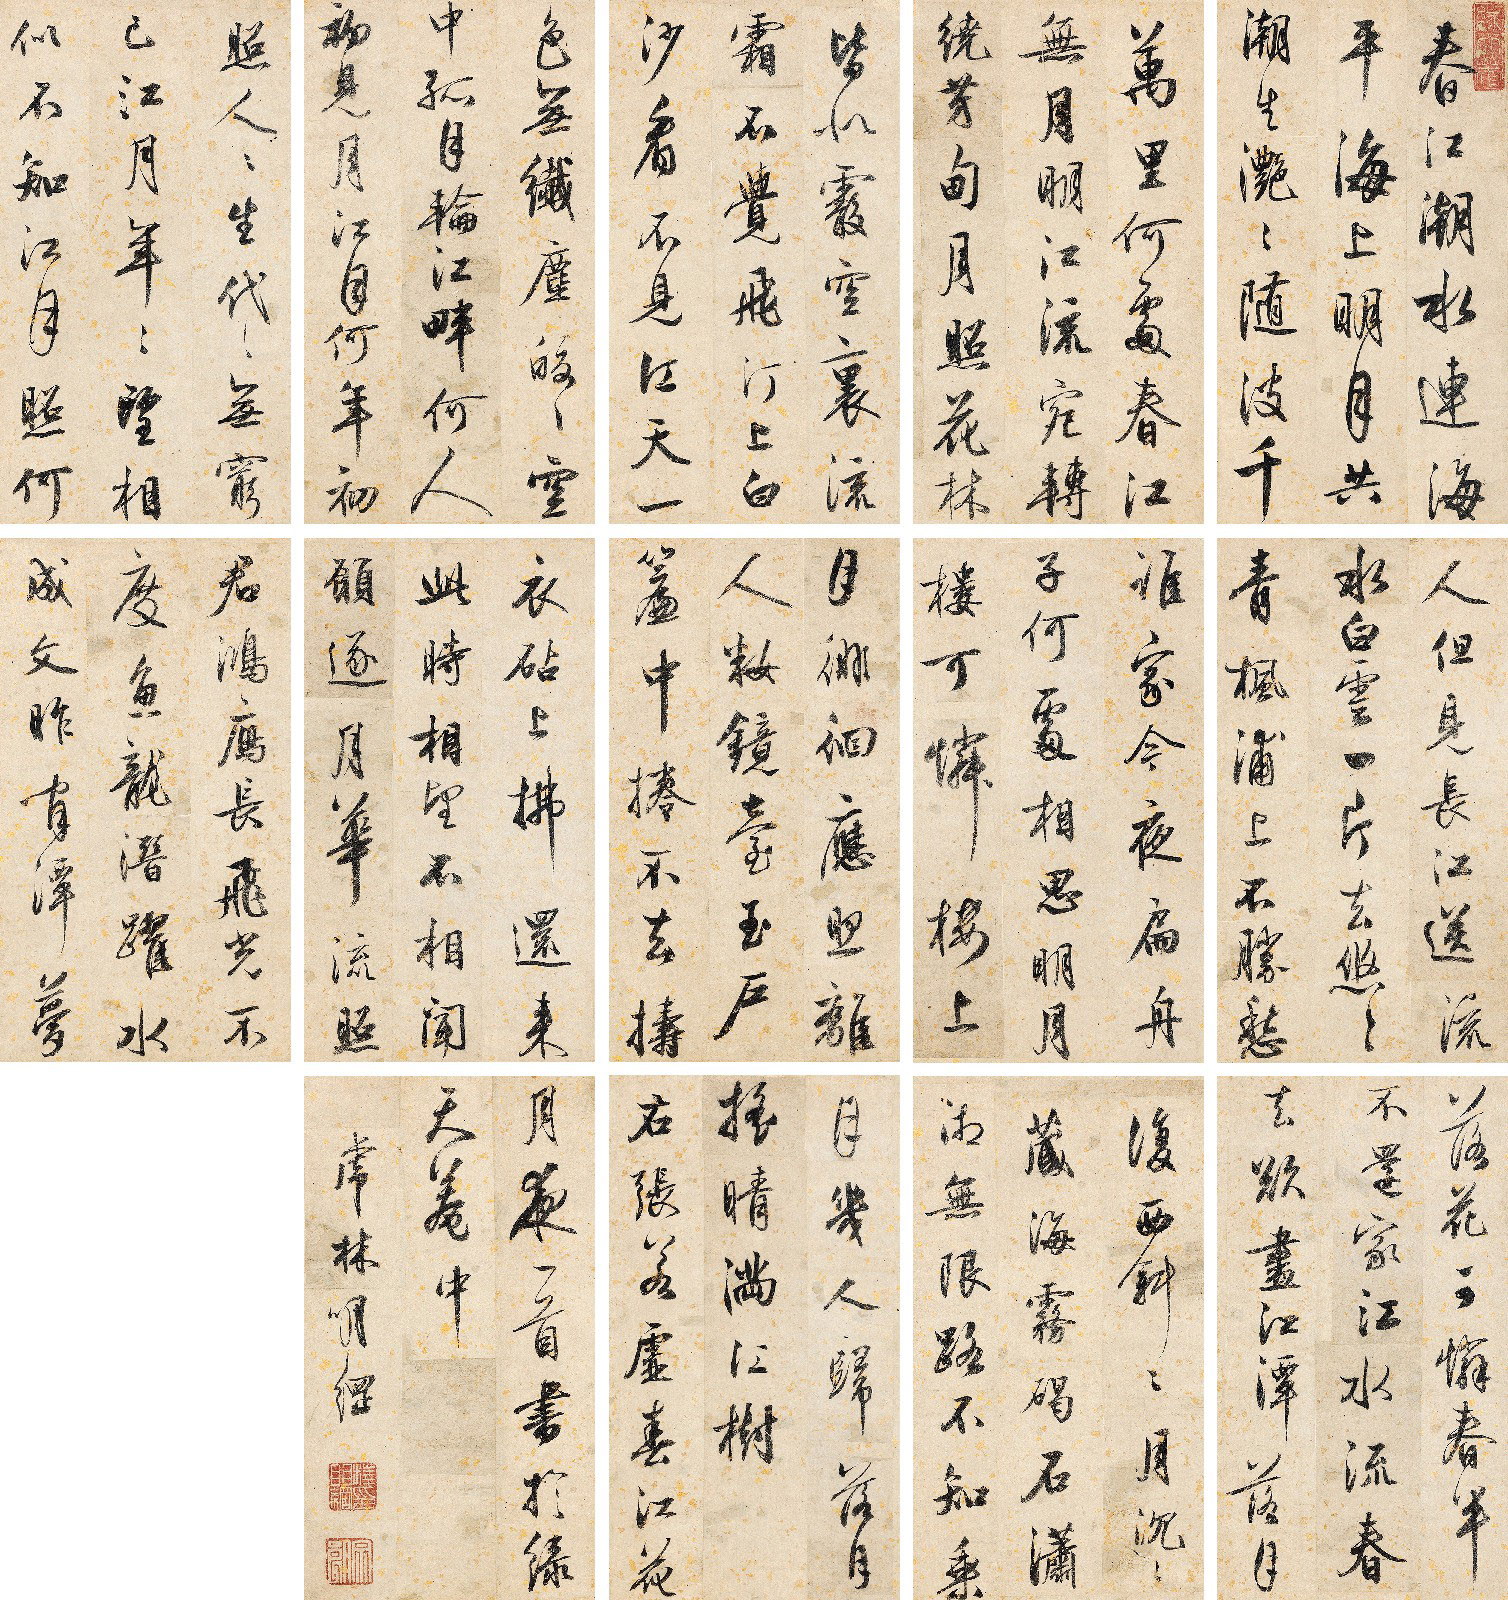 春江潮水連海
平海上明月共
潮生灔〻随波千
萬里何處春江
無月明江流宛轉
繞芳甸月照花林
皆似霰空裏流
霜不覺飛汀上白
沙看不見江天一
色無纖塵皎〻空
中孤月輪江畔何人
初見月江月何年初
照人〻生代〻無窮
已江月年〻望相
似不知江月照何
人但見長江送流
水白雲一片去悠〻
青楓浦上不勝愁
誰家今夜扁舟
子何處相思明月
樓可憐樓上
月徘徊應照離
人妝鏡臺玉戶
簾中捲不去擣
衣砧上拂還來
此時相望不相聞
願逐月華流照
君鴻雁長飛光不
度魚龍潛躍水
成文昨宵潭夢
落花可憐春半
不還家江水流春
去欲盡江潭落月
復西斜〻月沉〻
藏海霧碣石瀟
湘無限路不知乘
月幾人歸落月
搖晴滿江樹
右張若虛春江花
月夜一首書於綠
天菴中
虎林明綱